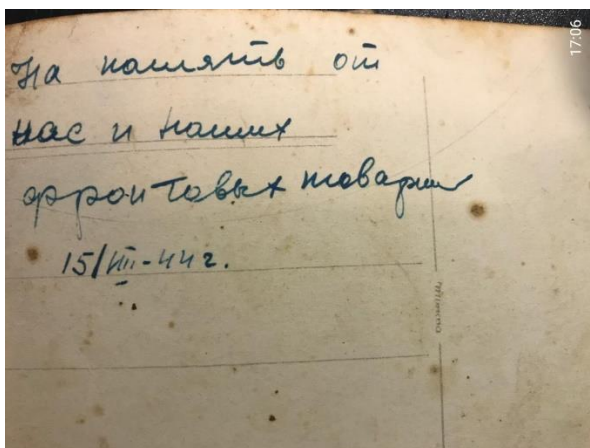 На память от
нас и наших
фронтовых товарищ
15/VIII-44 г.
17:06